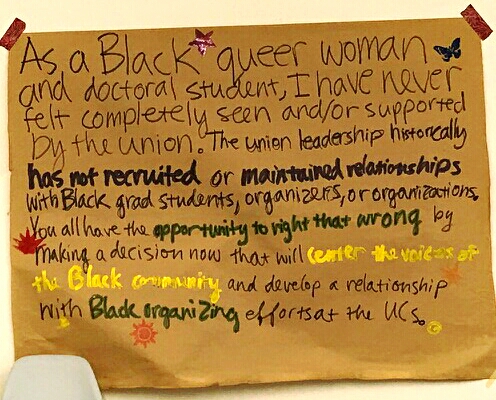 As a Black queer woman
and doctoral student, I have never
felt completely seen and/or supported
by the union. The union leadership historically
has not recruited or maintained relationships
with Black grad students, organizers, or organizations.
You all have the opportunity to right that wrong by
making a decision now that will center the voices of
the Black community and develop a relationship
with Black organizing efforts at the UCs.